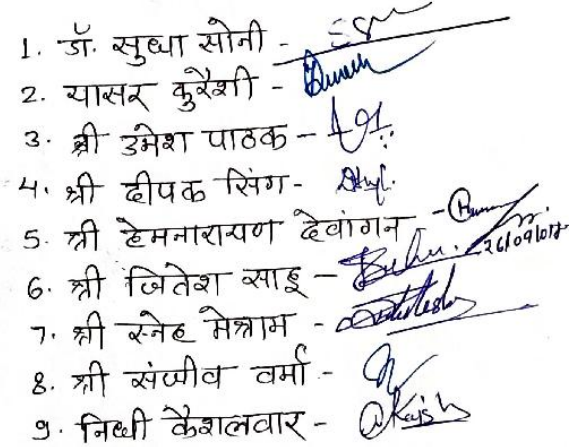 1. डॉ. सुधा सोनी -
2. यासर कुरैशी -
3. श्री उमेश पाठक -
4. श्री दीपक सिंग -
5. श्री हेमनारायण देवांगन -
26/09/017
6. श्री जितेश साहू -
7. श्री स्नेह मेश्राम -
8. श्री संजीव वर्मा -
9. निधी कैशलवार -